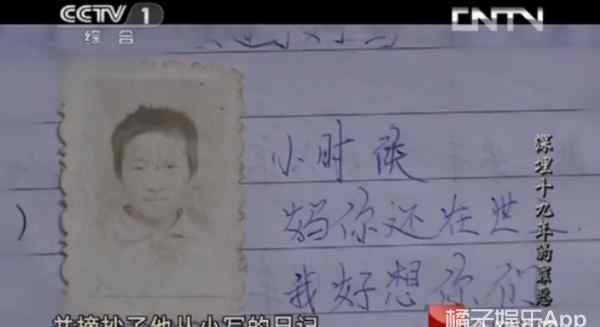 CCTV 1
综合
CNTV
小时候
妈你还在世
我好想你们
深埋十九年的罪恶
并摘抄了他从小写的日记
橘子娱乐App